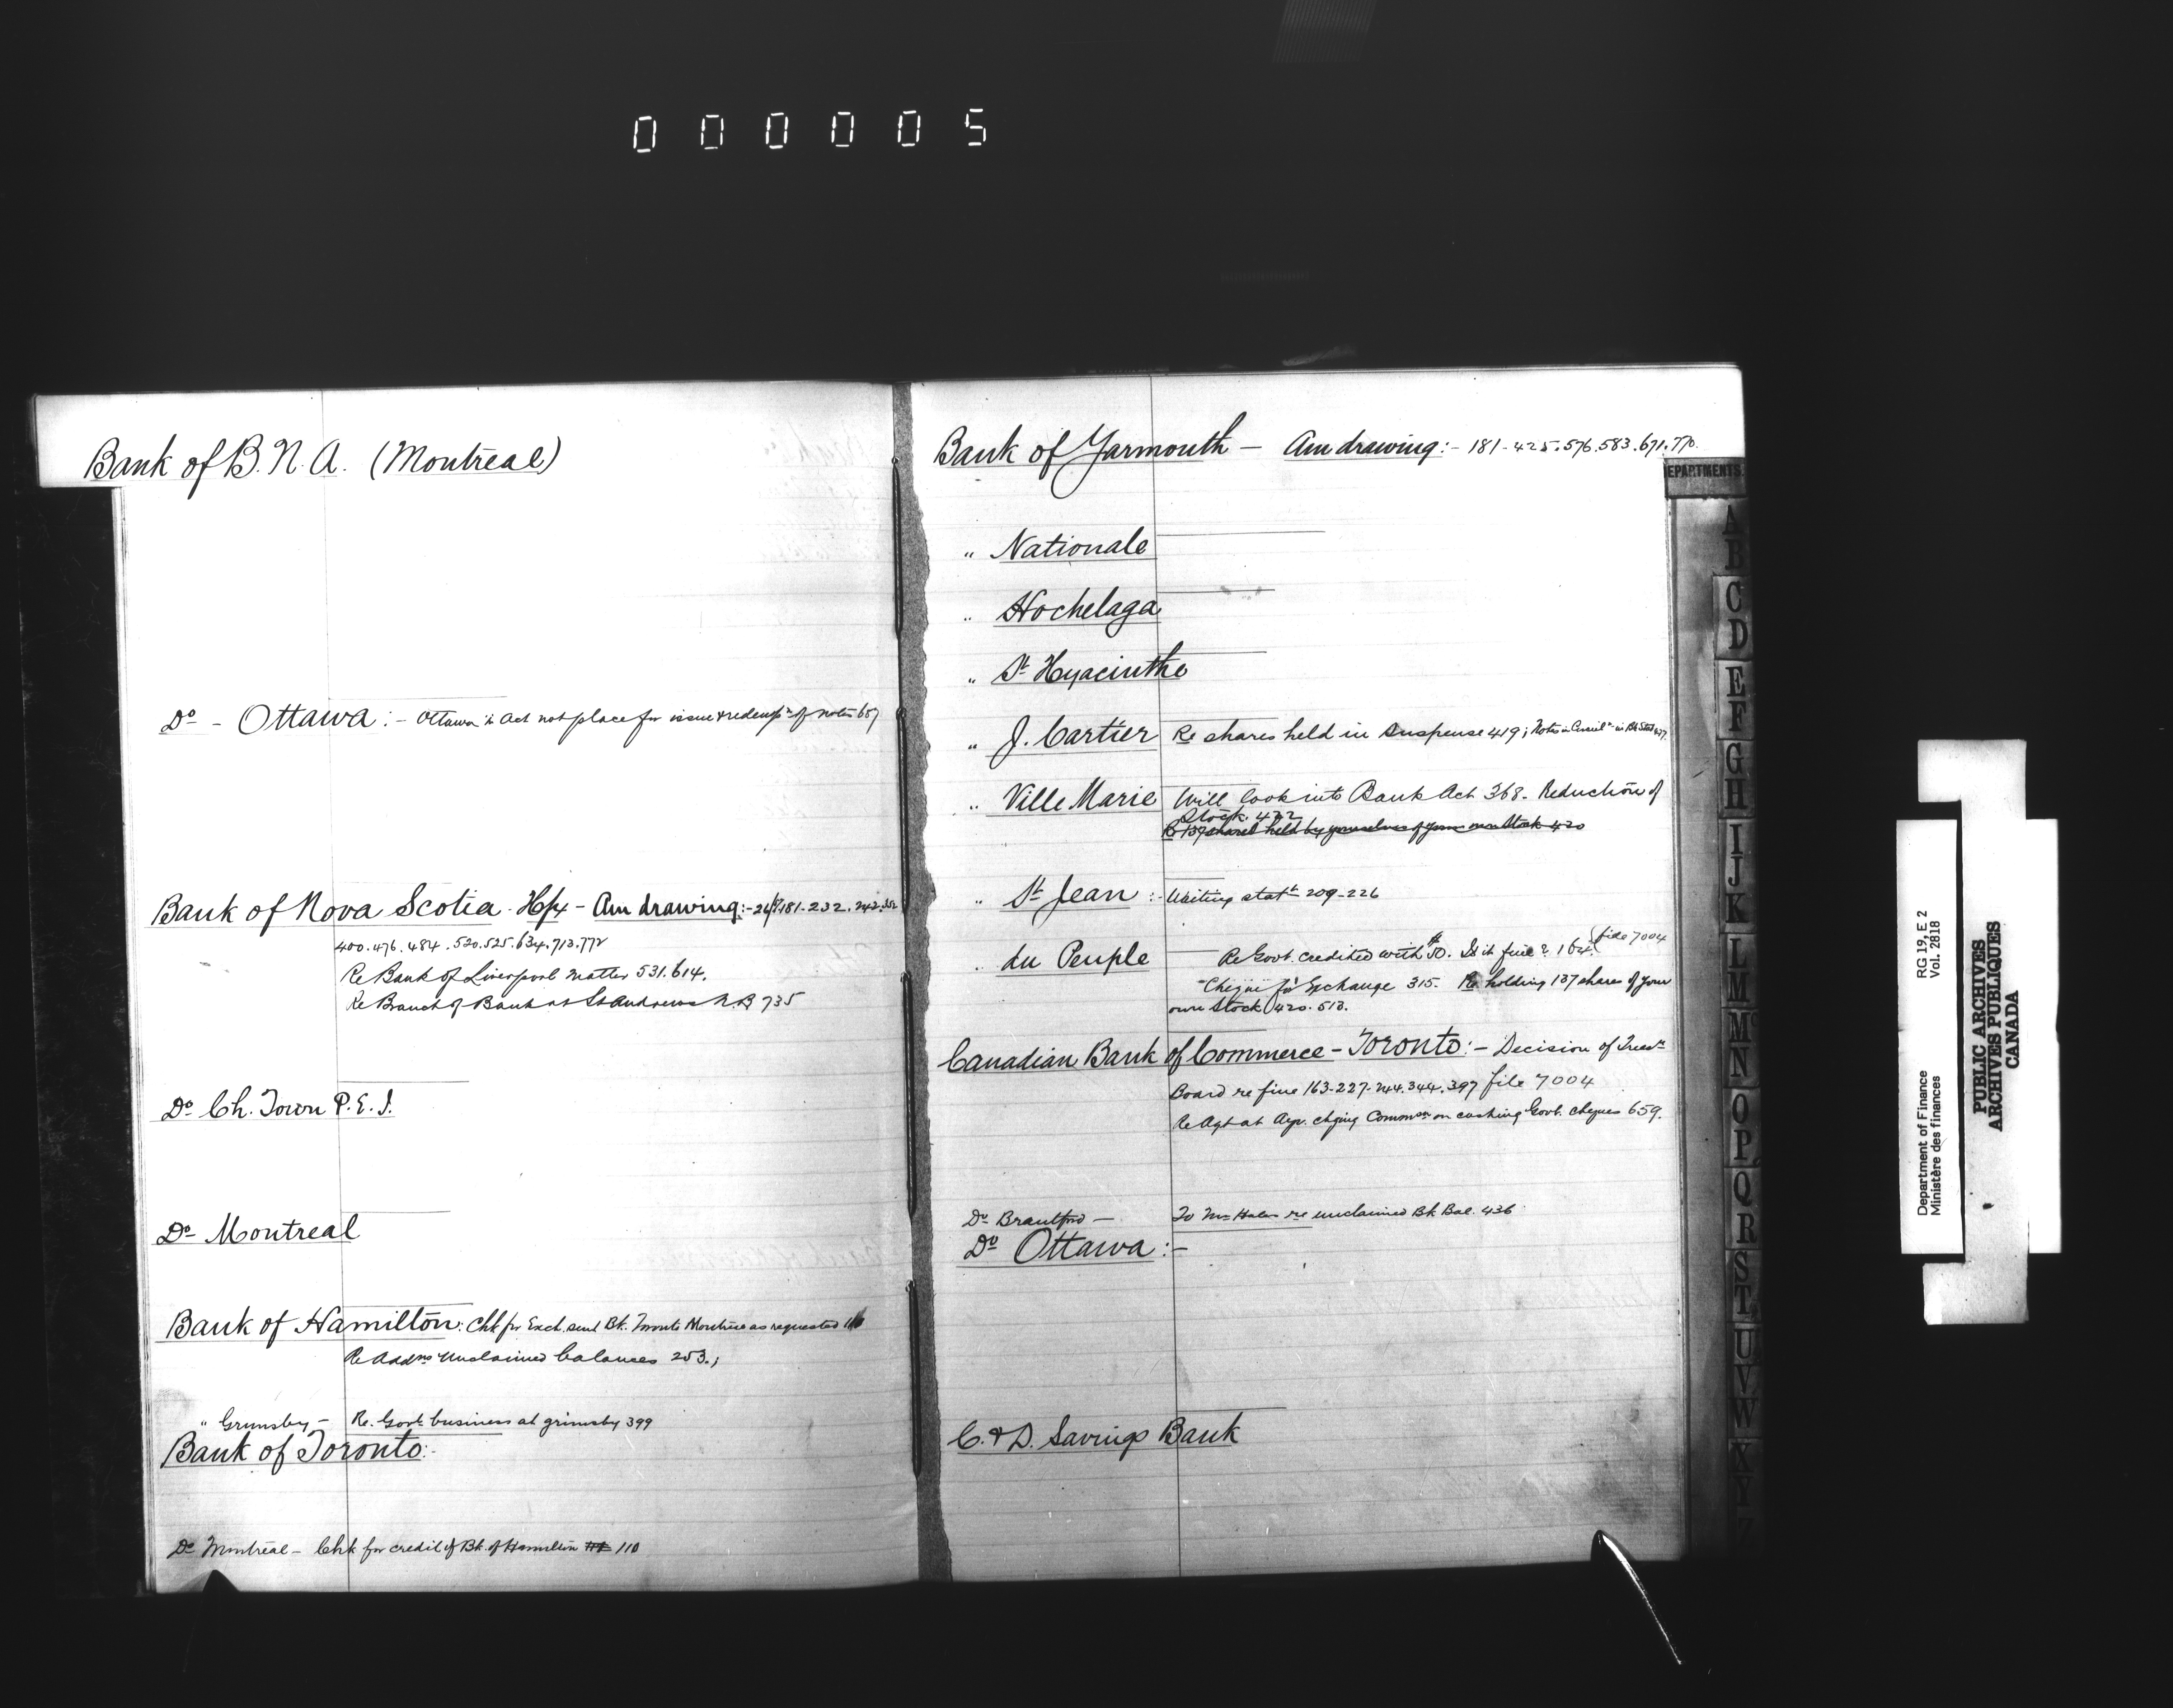 000005
Bank of B.N.A. (Montreal)
Do - Ottawa :- Ottawa in Act not place for issue & redempn of notes 657
Bank of Nova Scotia Hfx - Am drawing :- 181-232.242.352
400.476.484.520.525.634.713.772
Re Bank of Liverpool matter 531.614.
Re Branch of Bank at St Andrews N.B 735
Do Ch. Town P.E.I.
Do Montreal
Bank of Hamilton: Chk for Exch. sent Bk. Toronto Montreal as requested
Re Addns Unclaimed balances 253.;
" Grimsby - Re. Govt business at grimsby 399
Bank of Toronto:-
Do Montreal - Chk for credit of Bk. of Hamilton 110
Bank of Yarmouth - Am drawing :- 181-425.576.583.671.770.
" Nationale
" Hochelaga
" St Hyacinthe
" J. Cartier Re shares held in Suspense 419; Notes in
" Ville Marie Will look into Bank Act 368. Reduction of
Stock. 432
Re 137 shares held by yourselves of your own Stock 420
" St Jean :- Waiting statt 209-226
" du Peuple Re Govt. credited with $50. Is it fine? 164. file 7004
Cheque for Exchange 315. Re holding 137 shares of your
own Stock 420.513.
Canadian Bank of Commerce - Toronto :- Decision of Treasy
Board re fine 163-227-244.344.397 file 7004
Re Agt at Ayr. chging Commson on cashing Govt. cheques 659.
Do Brantford - To Mr re unclaimed Bk Bal. 436
Do Ottawa :-
C. & D. Savings Bank
EPARTMENTS
A
B
C
D
E
F
G
H
I
J
K
L
M
Mc
N
O
P
Q
R
S
T
U
V
W
X
Y
Z
Department of Finance RG 19, E 2
Ministère des finances Vol. 2818
PUBLIC ARCHIVES
ARCHIVES PUBLIQUES
CANADA